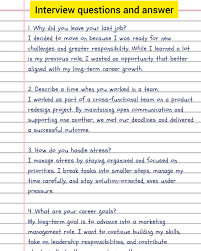 Interview questions and answer
1. Why did you leave your last job?
I decided to move on because I was ready for new
challenges and greater responsibility. While I learned a lot
in my previous role, I wanted an opportunity that better
aligned with my long-term career growth.
2. Describe a time when you worked in a team.
I worked as part of a cross-functional team on a product
redesign project. By maintaining open communication and
supporting one another, we met our deadlines and delivered
a successful outcome.
3. How do you handle stress?
I manage stress by staying organised and focused on
priorities. I break tasks into smaller steps, manage my
time carefully, and stay solution-oriented, even under
pressure.
4. What are your career goals?
My long-term goal is to advance into a marketing
management role. I want to continue building my skills,
take on leadership responsibilities, and contribute